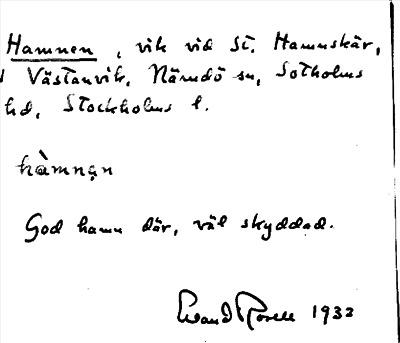 Hamnen, vik vid St. Hamnskär,
Västanvik, Nämdö sn, Sotholms
hd, Stockholms l.
hàmnạn
God hamn där, väl skyddad.
1933